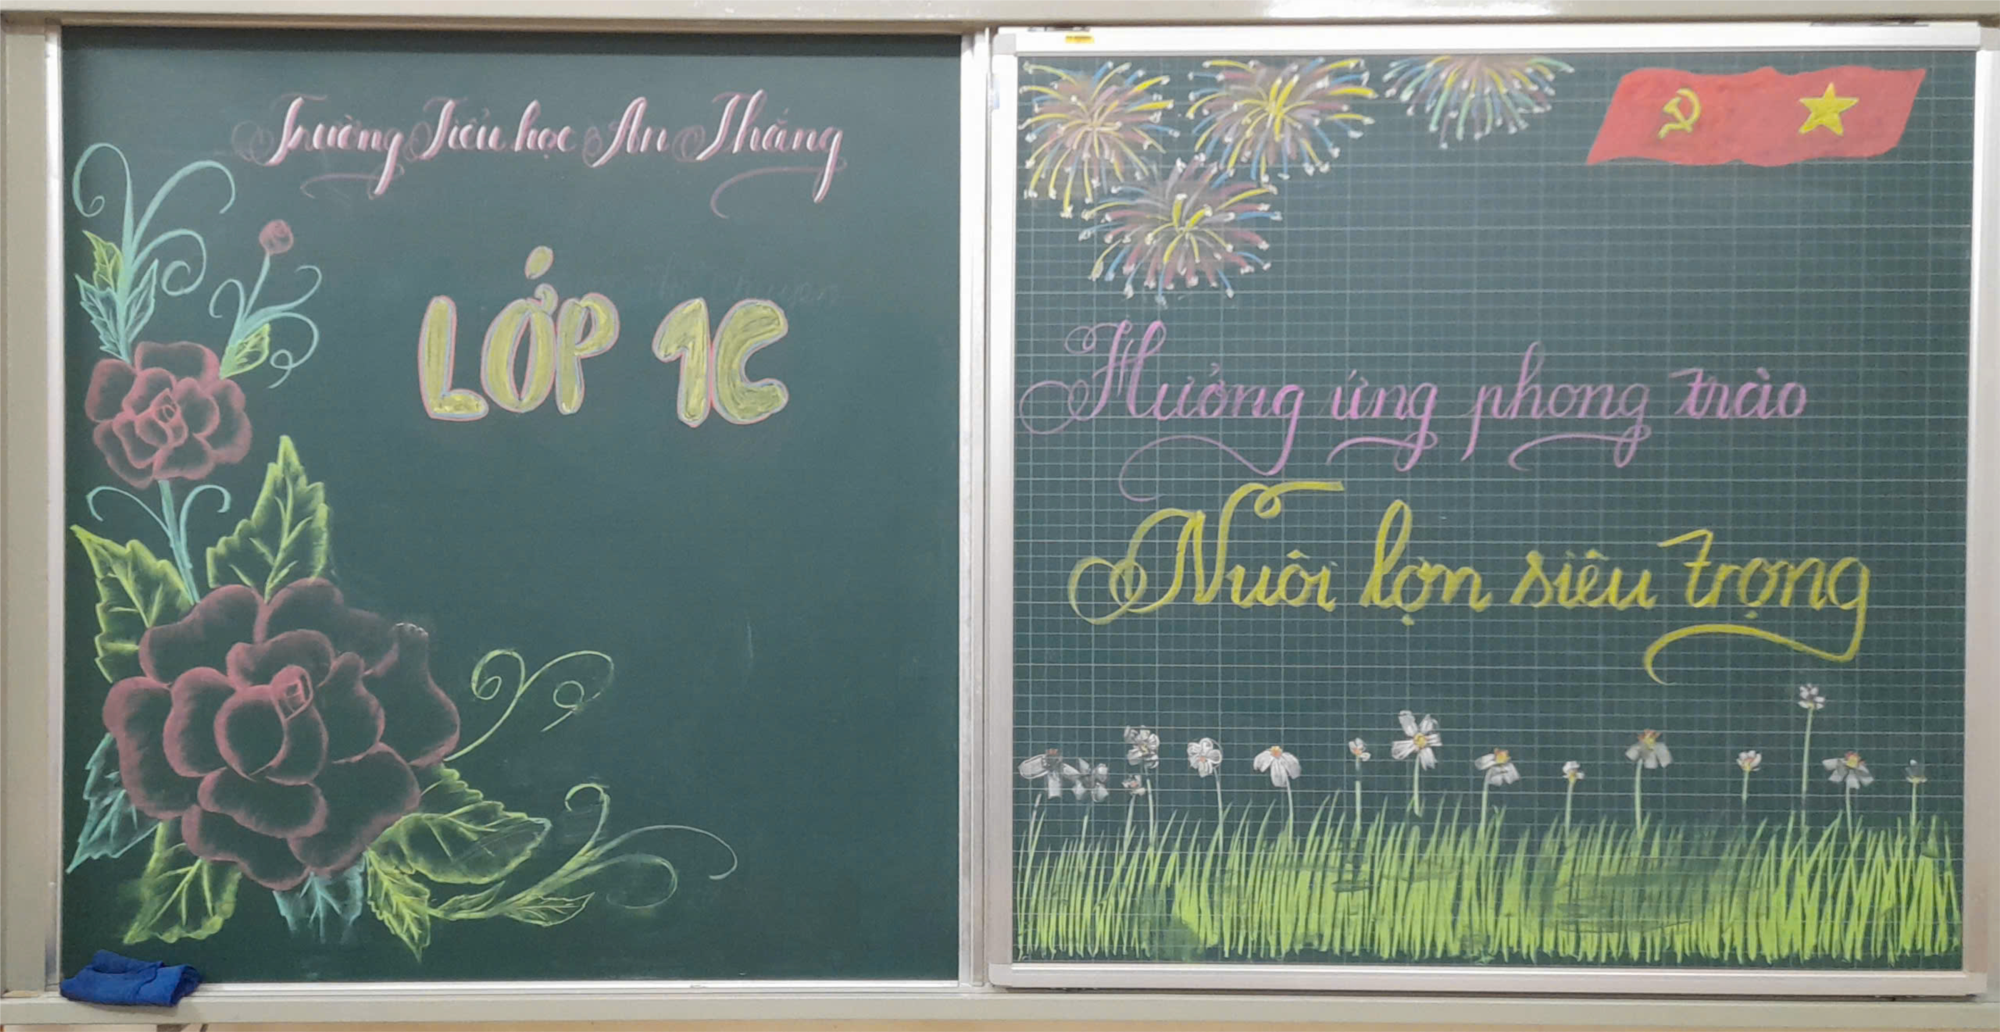 Trường Tiểu học An Thắng
LỚP 1C
Hưởng ứng phong trào
Nuôi lợn siêu trọng